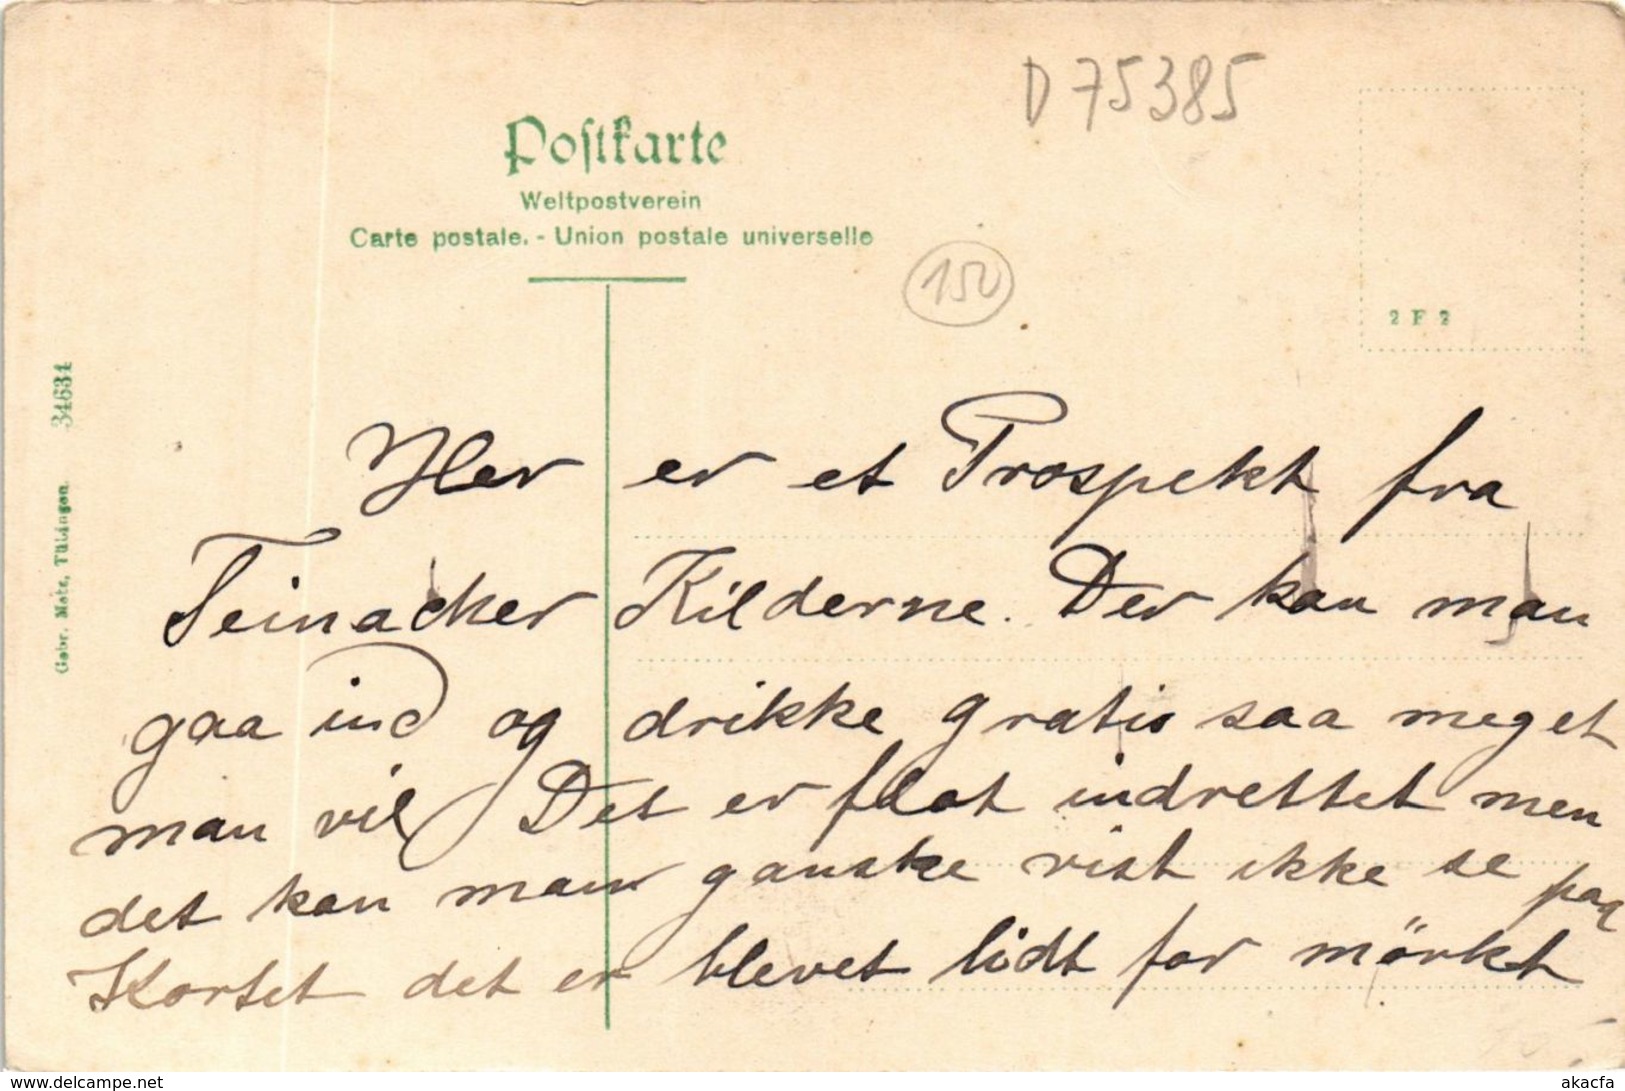 D 75385
Postkarte
Weltpostverein
Carte postale. - Union postale universelle
150
2 F 2
Gebr. Metz, Tübingen. 34634
Her er et Prospekt fra
Teinacher Kilderne. Der kan man
gaa ind og drikke gratis saa meget
man vil. Det er flot indrettet men
det kan man ganske vist ikke se paa
Kortet det er blevet lidt for mörkt
www.delcampe.net
akacfa